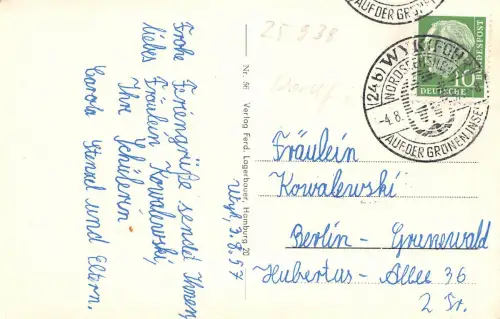 Frohe Feriengrüße sendet Ihnen,
liebes Fräulein Kowalewski,
Ihre Schülerin
Carola Stenzel und Eltern.
Wyk, 3.8.57
Nr. 56 Verlag Ferd. Lagerbauer, Hamburg 20
25 9 38
AUF DER GRÜNEN
(24b) WYK
NORDSEE
-4.8.
AUF DER GRÜNEN INSEL
10
DEUTSCHE
BUNDESPOST
Fräulein
Kowalewski
Berlin-Grunewald
Hubertus-Allee 36
2 Tr.